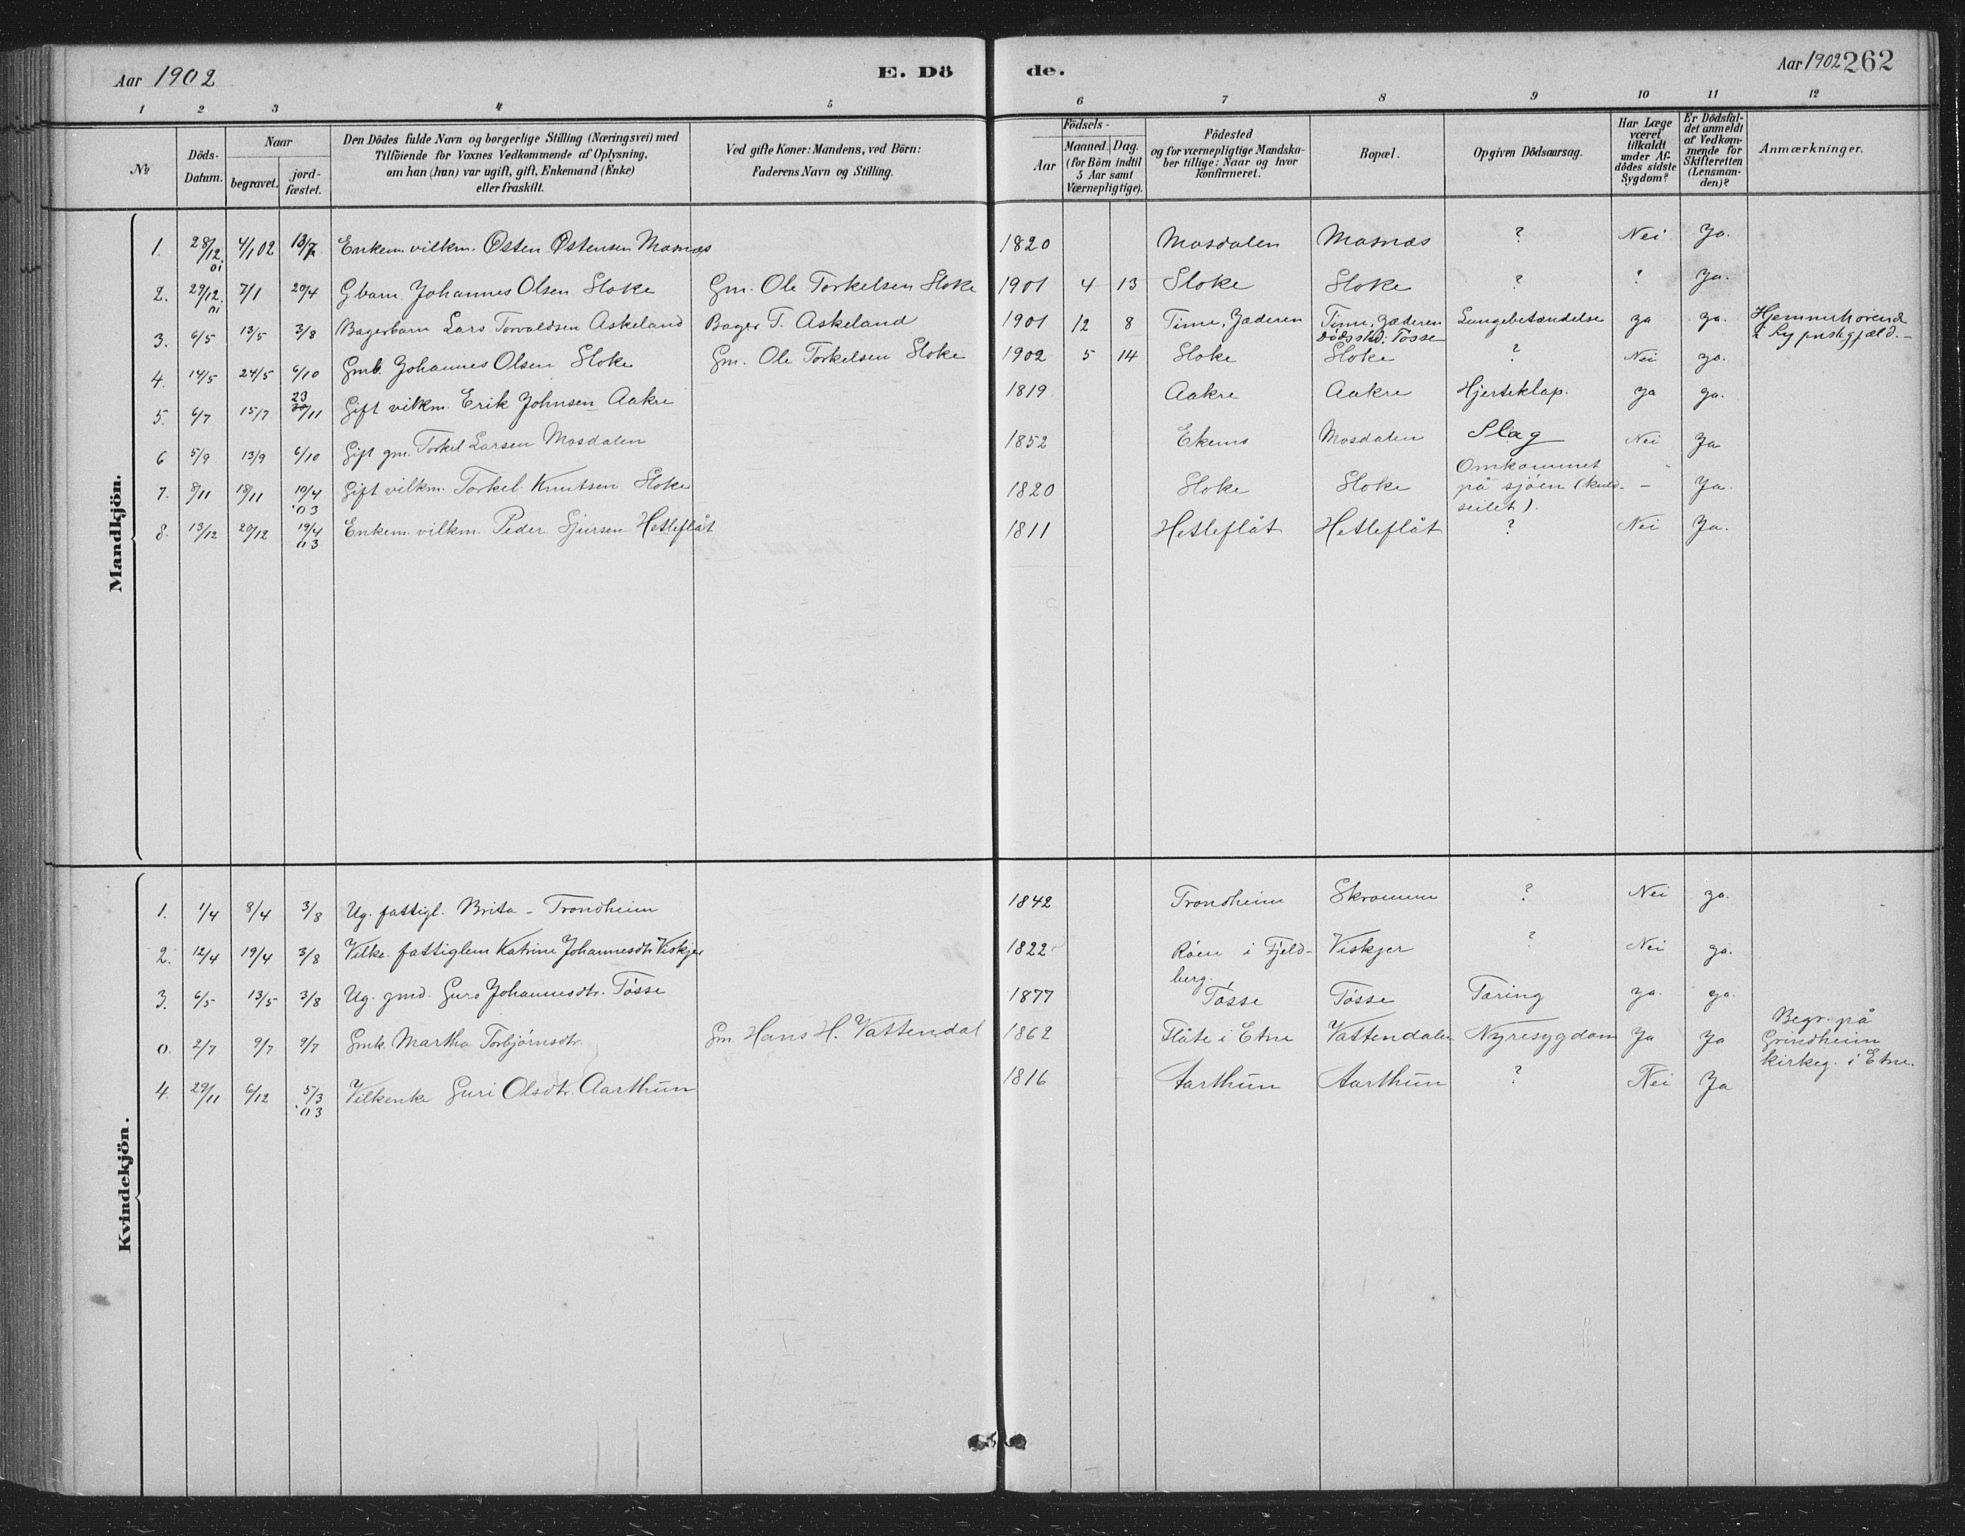 Aar 1902
E. Dö
de.
Aar 1902 262
1 2 3 4 5 6 7 8 9 10 11 12
№
Döds-Datum.
Naar
begravet.
jord-fæstet.
Den Dödes fulde Navn og borgerlige Stilling (Næringsvei) med
Tilföiende for Voxnes Vedkommende af Oplysning,
om han (hun) var ugift, gift, Enkemand (Enke)
eller fraskilt.
Ved gifte Koner: Mandens, ved Börn:
Faderens Navn og Stilling.
Födsels-
Aar
Maaned. Dag.
(for Börn indtil
5 Aar samt
Værnepligtige).
Födested
og for værnepligtige Mandska-
ber tillige: Naar og hvor
konfirmeret.
Bopæl.
Opgiven Dödsaarsag.
Har Læge
været
tilkaldt
under Af-
dödes sidste
Sygdom?
Er Dödsfal-
det anmeldt
af Vedkom-
mende for
Skifteretten
(Lensman-
den)?
Anmærkninger.
Mandkjön.
1. 28/12 01 4/1 02 13/7 Enkem. vilkm. Østen Østensen Mosnæs 1820 Mosdalen Mosnæs ? Nei Ja.
2. 29/12 01 7/1 20/4 Gbarn Johannes Olsen Sloke Gm. Ole Torkelsen Sloke 1901 4 13 Sloke Sloke ? ? Ja.
3. 6/5 13/5 3/8 Bagerbarn Lars Torvaldsen Askeland Bager T. Askeland 1901 12 8 Time, Jæderen Time, Jæderen Lungebetændelse ja ja. Hjemmehørend
dødssted: Tøsse
4. 14/5 24/5 6/10 Gmb. Johannes Olsen Sloke Gm. Ole Torkelsen Sloke 1902 5 14 Sloke Sloke ? Nei ja.
5. 6/7 15/7 23/11 Gift vilkm. Erik Johnsen Aakre 1819 Aakre Aakre Hjerteklap. ja ja.
6 5/9 13/9 6/10 Gift gm. Torkel Larsen Mosdalen 1852 Ekenes Mosdalen Slag Nei Ja
7. 8/11 18/11 10/4 '03 Gift vilkm. Torkel Knutsen Sloke 1820 Sloke Sloke Omkommet
på sjøen (kuld-
seilet). - Ja.
8. 13/12 20/12 19/4 03 Enkem. vilkm. Peder Sjursen Hetleflåt 1811 Hetleflåt Hetleflåt ? Nei Ja.
Kvindekjön.
1. 1/4 8/4 3/8 Ug. fattigl. Brita - Trondheim 1842 Trondheim Skromme ? Nei ja.
2. 12/4 19/4 3/8 Vilke. fattiglem Katrine Johannesdtr. Viskjer 1822 Røen i Fjeld-
berg. Viskjer ? Nei ja.
3. 6/5 13/5 3/8 Ug. gmd. Guro Johannesdtr. Tøsse 1877 Tøsse Tøsse Tæring ja. ja.
0. 2/7 9/7 9/7 Gmk. Martha Torbjørnsdtr. Gm. Hans H. Vattendal 1862 Flåte i Etne Vattendalen Nyresygdom Ja Ja Begr. på
Grindheim
kirkeg. i Etne.
4. 29/11 6/12 5/3 '03 Vilkenke Guri Olsdtr. Aarthun 1816 Aarthun Aarthun ? Nei Ja